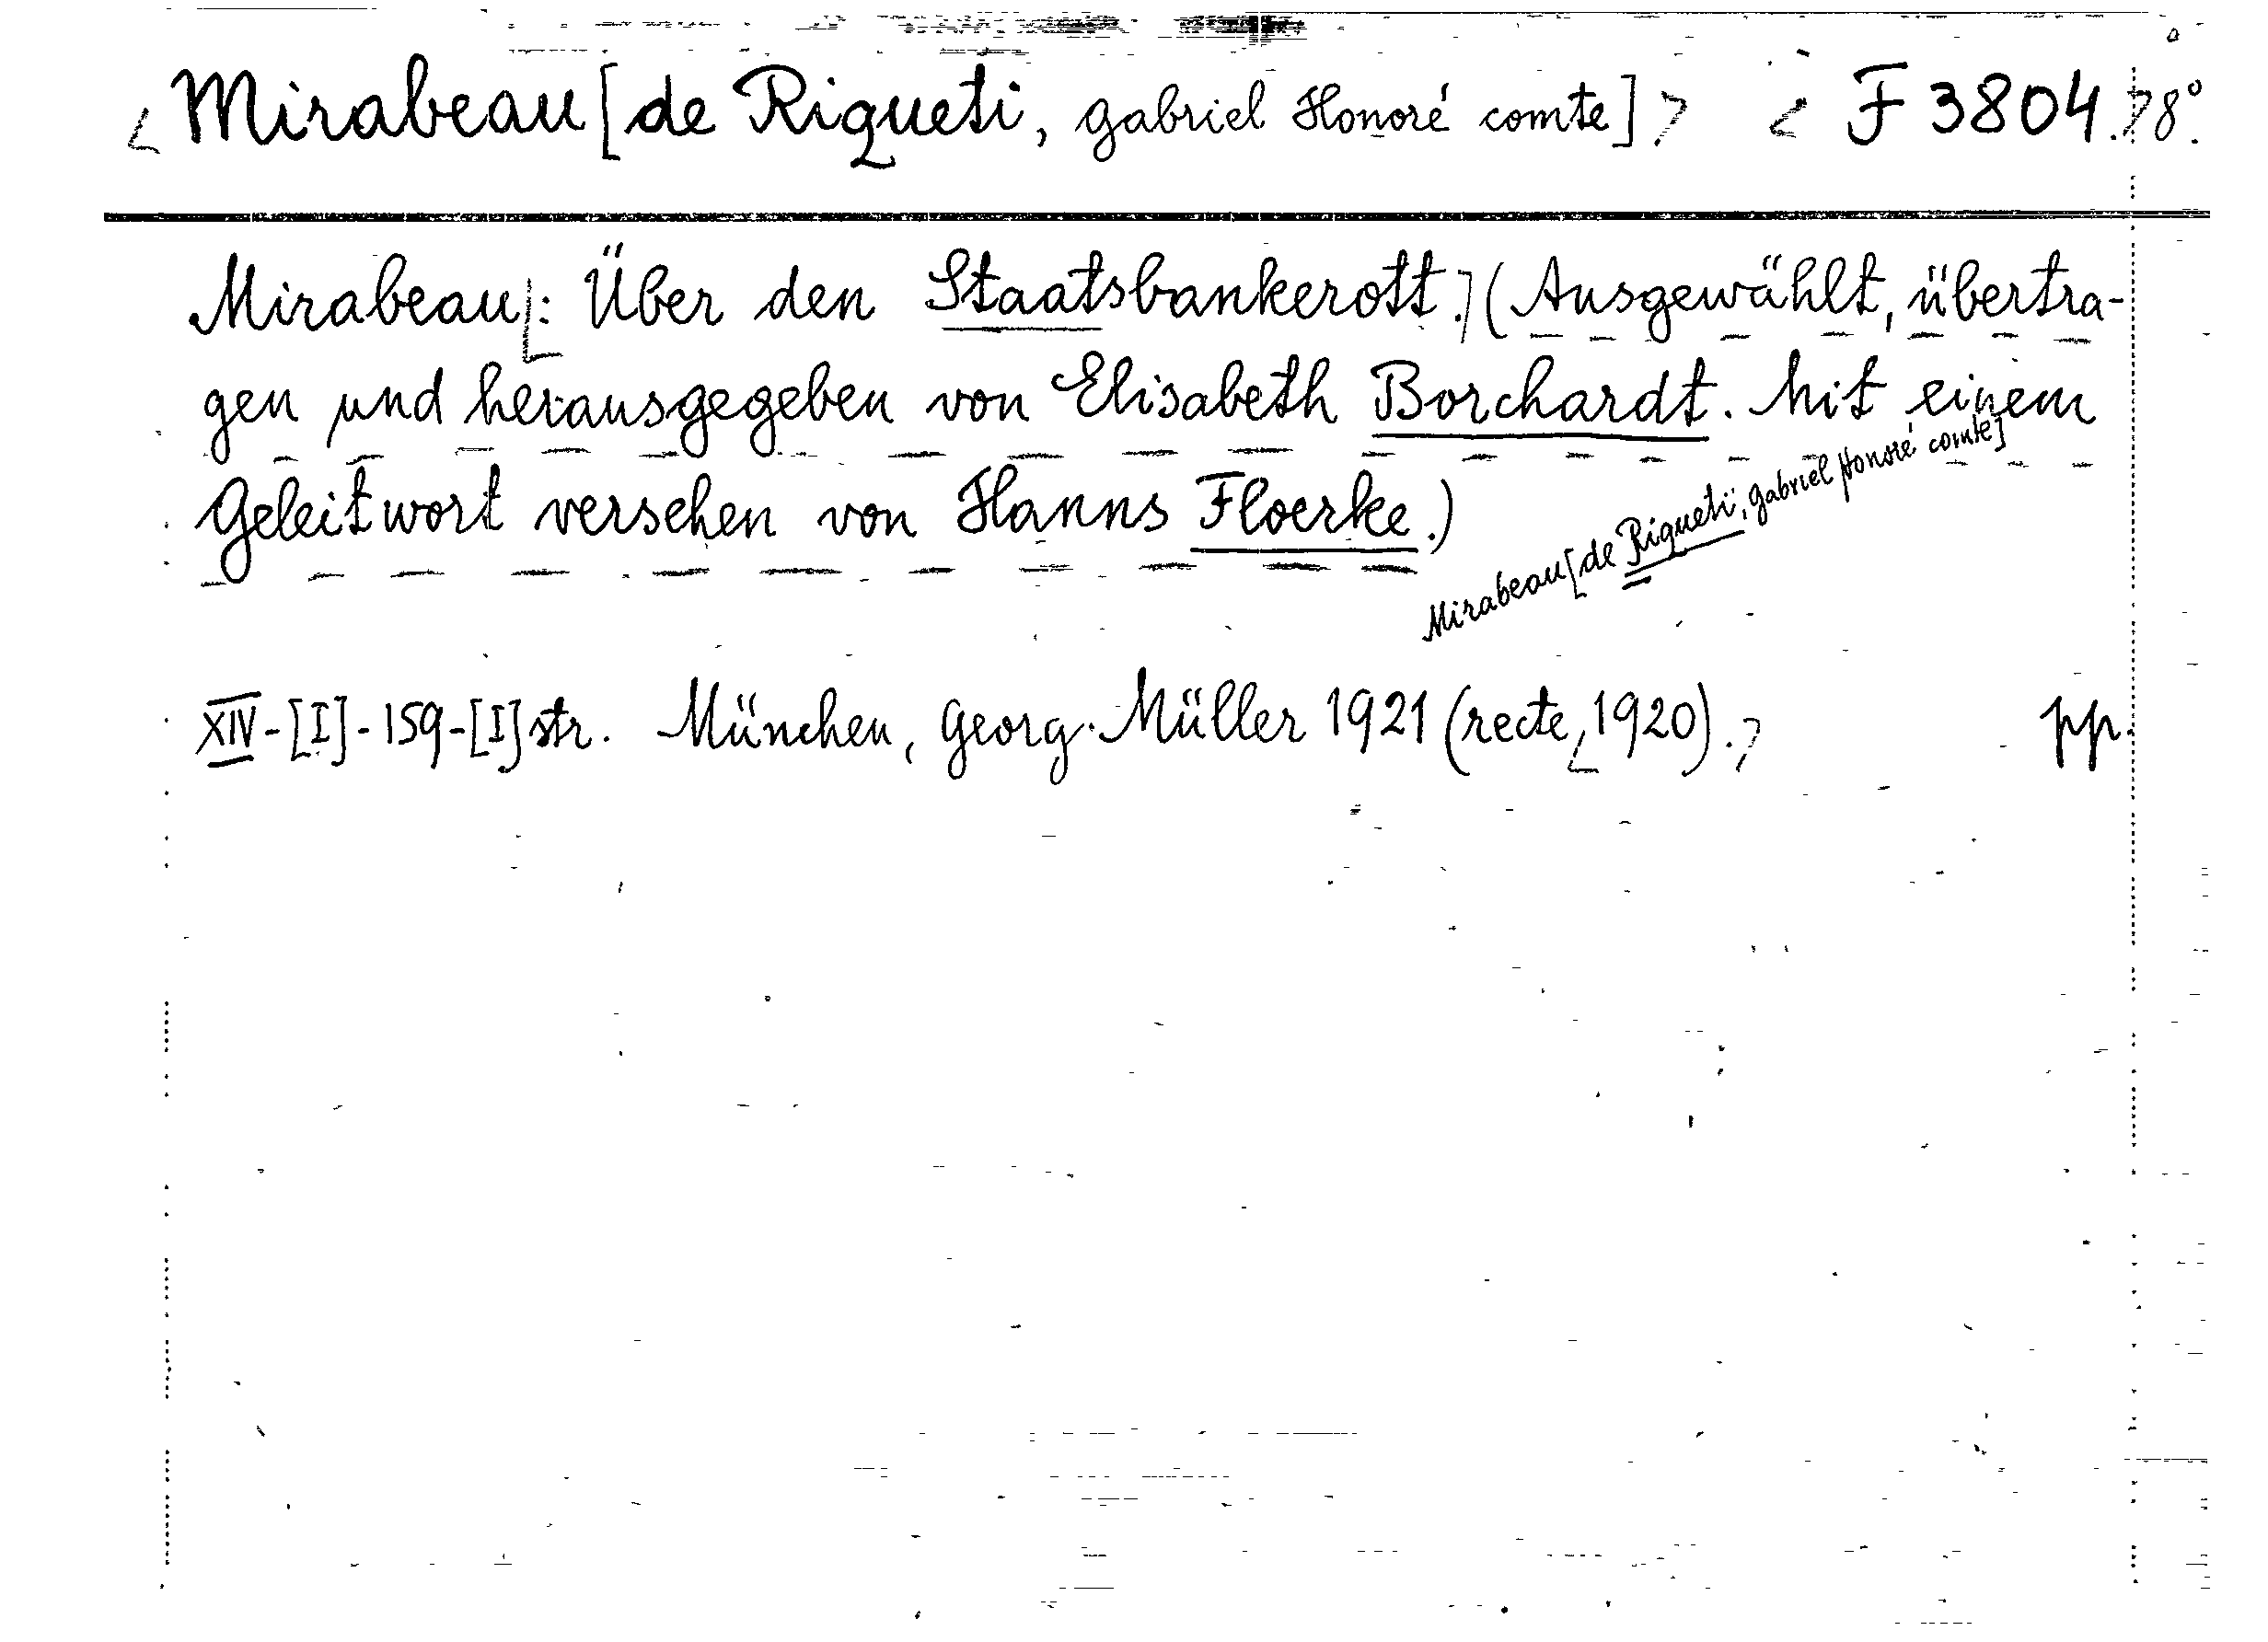 <Mirabeau [de Riqueti, Gabriel Honoré comte]> <F 3804.> 8º.
Mirabeau[: Über den Staatsbankerott.] (Ausgewählt, übertra-
gen und herausgegeben von Elisabeth Borchardt. Mit einem
Geleitwort versehen von Hanns Floerke.)
Mirabeau [de Riqueti, Gabriel Honoré comte]
XIV-[I]-159-[I] str. München, Georg Müller 1921 (recte <1920).> pp.